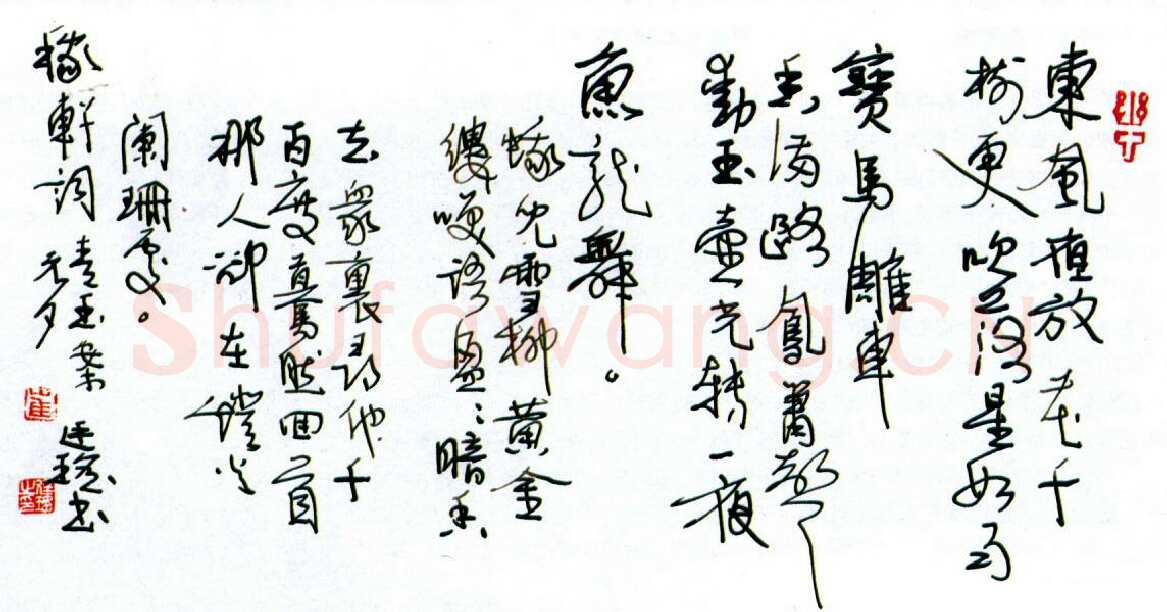 東風植放花千
樹更吹落星如雨
寶馬雕車
香滿路鳳簫聲
動玉壺光轉一夜
魚龍舞。
蛾兒雪柳黃金
縷笑語盈〻暗香
去眾裏尋他千
百度驀然回首
那人卻在燈火
闌珊處。
稼軒詞青玉案
元夕 書
崔
Shufawang.cn